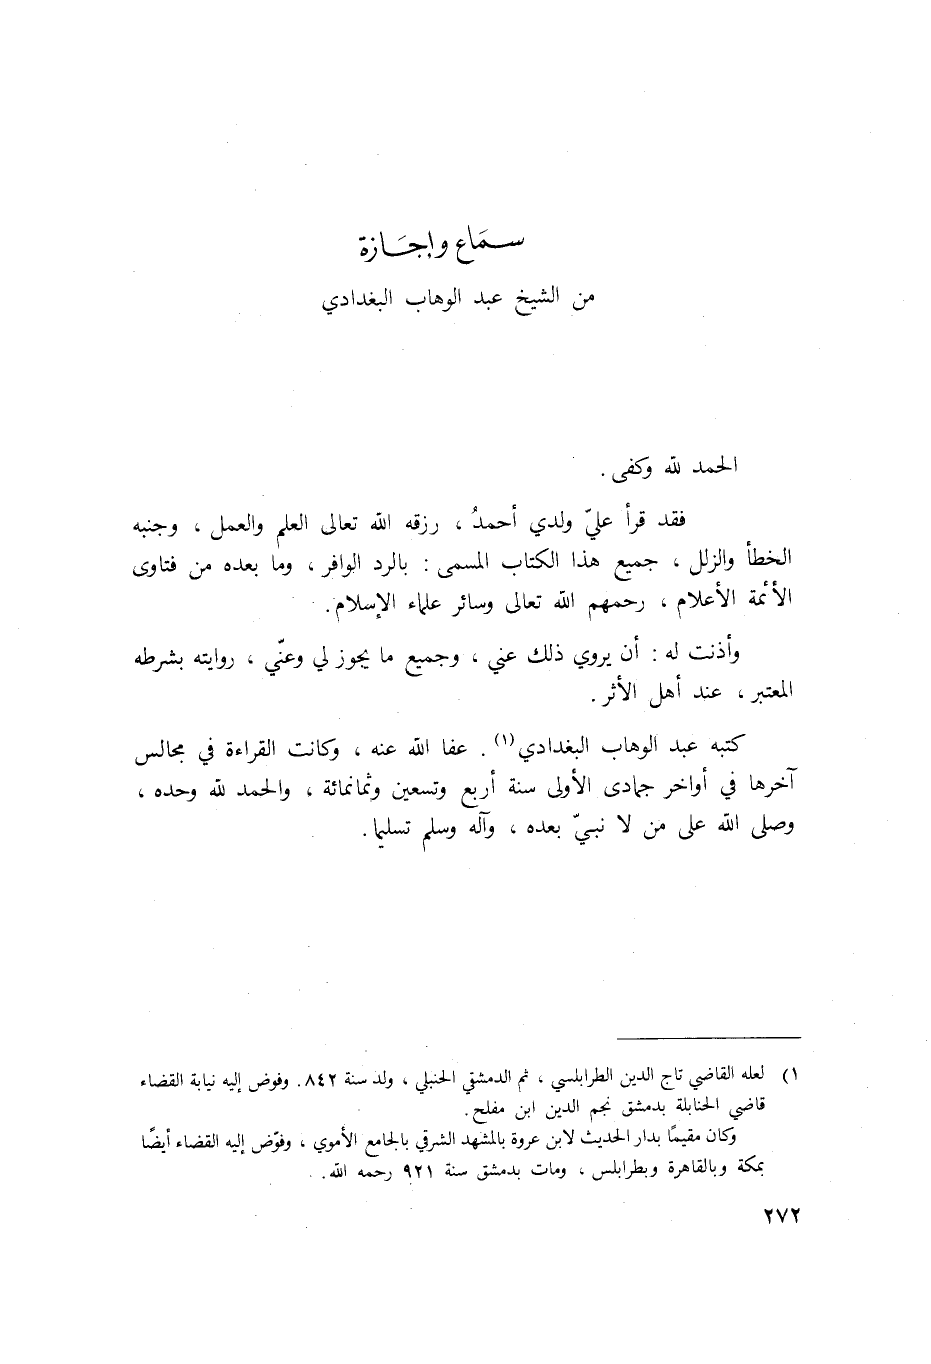 سمَاع وإجَازة
من الشيخ عبد الوهاب البغدادي
الحمد لله وكفى .
فقد قرأ عليّ ولدي أحمدُ ، رزقه الله تعالى العلم والعمل ، وجنبه
الخطأ والزلل ، جميع هذا الكتاب المسمى : بالرد الوافر ، وما بعده من فتاوى
الأئمة الأعلام ، رحمهم الله تعالى وسائر علماء الإسلام .
وأذنت له : أن يروي ذلك عني ، وجميع ما يجوز لي وعنّي ، روايته بشرطه
المعتبر ، عند أهل الأثر .
كتبه عبد الوهاب البغدادي(١) . عفا الله عنه ، وكانت القراءة في مجالس
آخرها في أواخر جمادى الأولى سنة أربع وتسعين وثمانمائة ، والحمد لله وحده ،
وصلى الله على من لا نبيّ بعده ، وآله وسلم تسليما .
١) لعله القاضي تاج الدين الطرابلسي ، ثم الدمشقي الحنبلي ، ولد سنة ٨٤٢ . وفوض إليه نيابة القضاء
قاضي الحنابلة بدمشق نجم الدين ابن مفلح .
وكان مقيمًا بدار الحديث لابن عروة بالمشهد الشرقي بالجامع الأموي ، وفوّض إليه القضاء أيضًا
بمكة وبالقاهرة وبطرابلس ، ومات بدمشق سنة ٩٢١ رحمه الله .
٢٧٢